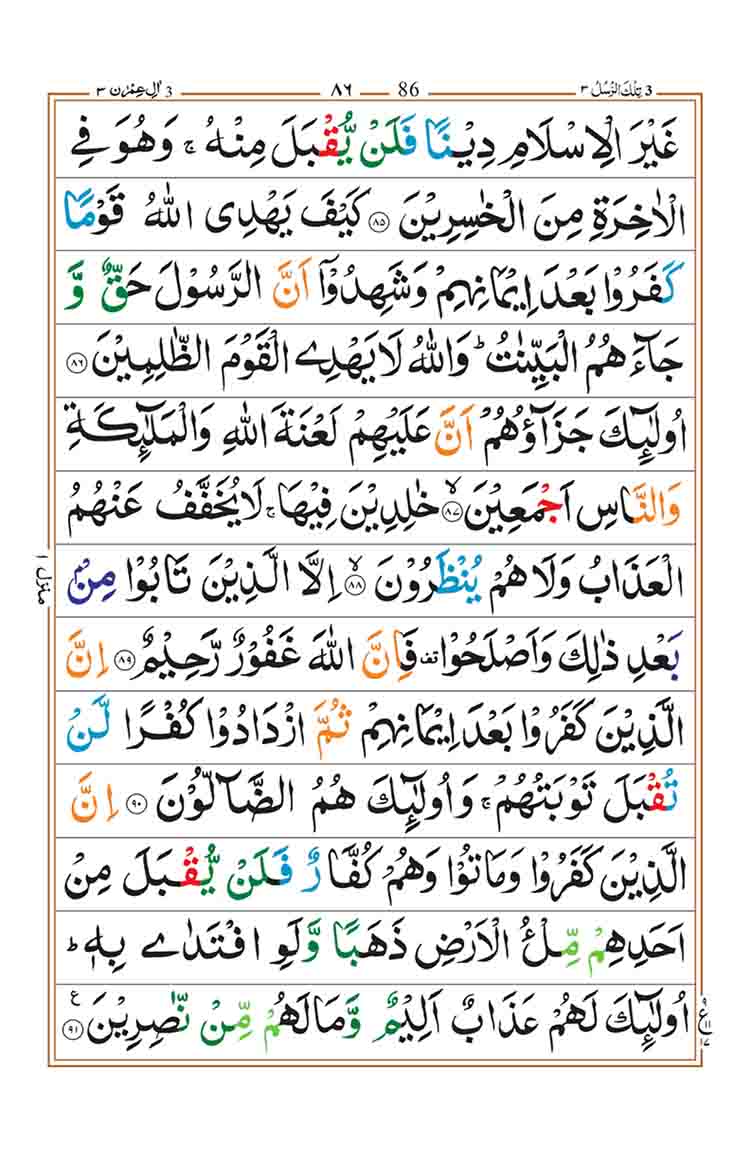 3 تِلْكَ الرُّسُلُ ٣ 86 ٨٦ 3 اٰلِ عِمْرٰن ٣
غَيْرَ الْاِسْلَامِ دِيْنًا فَلَنْ يُّقْبَلَ مِنْهُ ۚ وَهُوَ فِي
الْاٰخِرَةِ مِنَ الْخٰسِرِيْنَ ﴿٨٥﴾ كَيْفَ يَهْدِى اللّٰهُ قَوْمًا
كَفَرُوْا بَعْدَ اِيْمَانِهِمْ وَشَهِدُوْٓا اَنَّ الرَّسُوْلَ حَقٌّ وَّ
جَآءَهُمُ الْبَيِّنٰتُ ؕ وَاللّٰهُ لَا يَهْدِي الْقَوْمَ الظّٰلِمِيْنَ ﴿٨٦﴾
اُولٰٓئِكَ جَزَآؤُهُمْ اَنَّ عَلَيْهِمْ لَعْنَةَ اللّٰهِ وَالْمَلٰٓئِكَةِ
وَالنَّاسِ اَجْمَعِيْنَ ﴿٨٧﴾ ۙ خٰلِدِيْنَ فِيْهَا ۚ لَا يُخَفَّفُ عَنْهُمُ
الْعَذَابُ وَلَا هُمْ يُنْظَرُوْنَ ﴿٨٨﴾ ۙ اِلَّا الَّذِيْنَ تَابُوْا مِنْۢ
بَعْدِ ذٰلِكَ وَاَصْلَحُوْا قف فَاِنَّ اللّٰهَ غَفُوْرٌ رَّحِيْمٌ ﴿٨٩﴾ اِنَّ
الَّذِيْنَ كَفَرُوْا بَعْدَ اِيْمَانِهِمْ ثُمَّ ازْدَادُوْا كُفْرًا لَّنْ
تُقْبَلَ تَوْبَتُهُمْ ۚ وَاُولٰٓئِكَ هُمُ الضَّآلُّوْنَ ﴿٩٠﴾ اِنَّ
الَّذِيْنَ كَفَرُوْا وَمَاتُوْا وَهُمْ كُفَّارٌ فَلَنْ يُّقْبَلَ مِنْ
اَحَدِهِمْ مِّلْءُ الْاَرْضِ ذَهَبًا وَّلَوِ افْتَدٰى بِهٖ ؕ
اُولٰٓئِكَ لَهُمْ عَذَابٌ اَلِيْمٌ وَّمَا لَهُمْ مِّنْ نّٰصِرِيْنَ ﴿٩١﴾ ع
منزل ١
ع ١١ ١٧